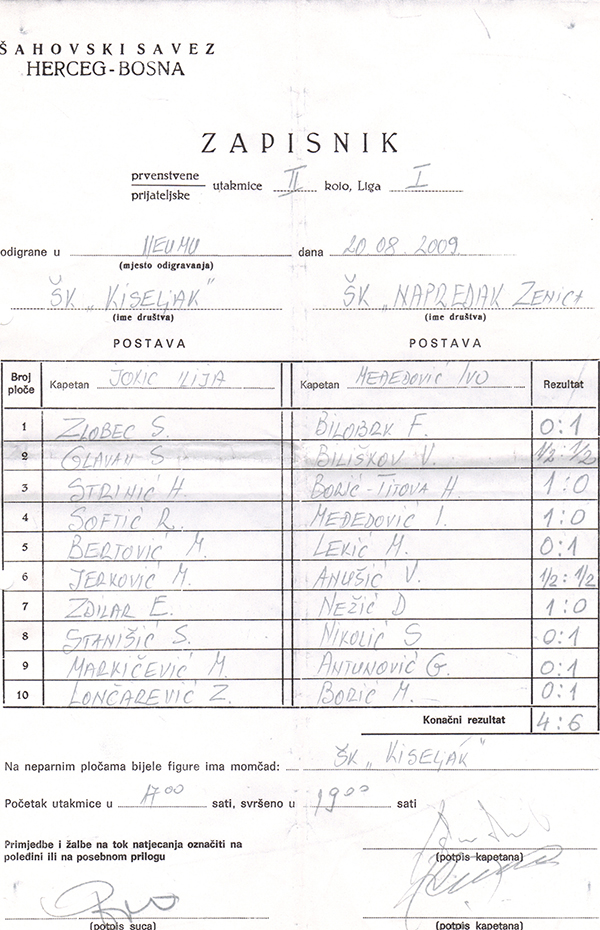 ŠAHOVSKI SAVEZ
HERCEG-BOSNA
ZAPISNIK
prvenstvene
prijateljske
utakmice II kolo, Liga I
odigrane u NEUMU dana 20.08.2009
(mjesto odigravanja)
ŠK „KISELJAK" ŠK „NAPREDAK ZENICA
(ime društva) (ime društva)
POSTAVA POSTAVA
Broj ploče Kapetan JOKIĆ ILIJA Kapetan MEĐEDOVIĆ IVO Rezultat
1 ZLOBEC S. BILOBRK F. 0:1
2 GLAVAN S BILIŠKOV V. 1/2:1/2
3 STRINIĆ H. BORIĆ-TITOVA H 1:0
4 SOFTIĆ R. MEĐEDOVIĆ I. 1:0
5 BERTOVIĆ M. LEKIĆ M. 0:1
6 JERKOVIĆ M. ANUŠIĆ V. 1/2:1/2
7 ZDILAR E. NEŽIĆ D 1:0
8 STANIŠIĆ S. NIKOLIĆ S 0:1
9 MARKIČEVIĆ M. ANTUNOVIĆ G. 0:1
10 LONČAREVIĆ Z. BORIĆ M. 0:1
Konačni rezultat 4:6
Na neparnim pločama bijele figure ima momčad: ŠK „KISELJAK"
Početak utakmice u 17 00 sati, svršeno u 19 00 sati
Primjedbe i žalbe na tok natjecanja označiti na
poledini ili na posebnom prilogu
(potpis kapetana)
(potpis suca) (potpis kapetana)